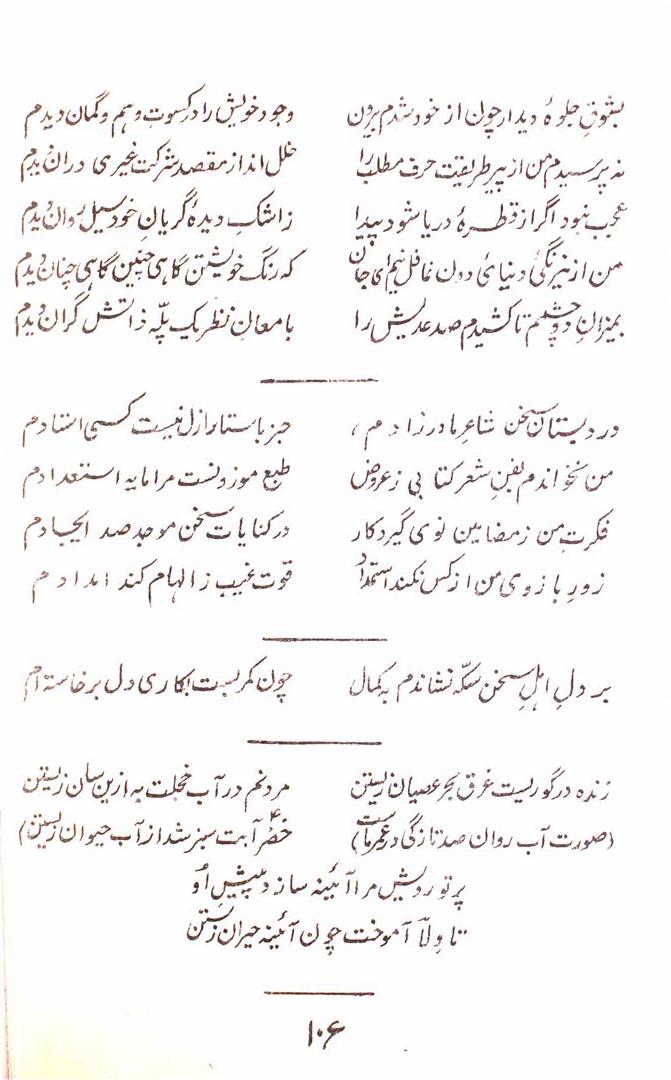 بشوقِ جلوهٔ دیدار چون از خود شدم بیرون وجود خویش را در کسوتِ وهم و گمان دیدم
نه پرسیدم من از پیرِ طریقت حرفِ مطلب را خلل انداز مقصد شرکتِ غیری دران دیدم
عجب نبود اگر از قطرهٔ دریا شود پیدا ز اشکِ دیدهٔ گریانِ خود سیل روان دیدم
من از نیرنگیٔ دنیائ دون غافل نیم ای جان که رنگ خویشتن گاهی چنین گاهی چنان دیدم
بمیزانِ دو چشمم تا کشیدم صد عدیلش را با معانِ نظر یک پلّه ذاتش گران دیدم
در دبستانِ سخن شاعرِ مادر زادم ، جز باستادِ ازل نیست کسی استادم
من نخواندم بفنِ شعر کتابی ز عروض طبع موزونست مرا مایه استعدادم
فکرتِ من ز مضامین نوی گیرد کار در کنایاتِ سخن موجدِ صد ایجادم
زورِ بازوی من از کس نکند استمداد قوت غیب ز الهام کند امدادم
بر دلِ اهلِ سخن سکّه نشاندم به کمال چون کمر بست بکاری دل برخاسته ام
زنده در گوریست غرق بحرِ عصیان زیستن مردنم در آب خجلت به ازین سان زیستن
(صورت آب روان صد تازگی در عمرِ ماست خضر آبت سبز شد از آب حیوان زیستن)
پرتو رویش مرا آئینه سازد پیشِ اُو
تا ولاؔ آموخت چون آئینه حیران زیستن
۱۰۶